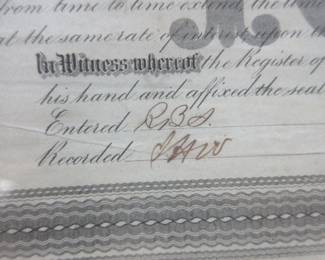 from time to time extend the time
at the same rate of interest upon
In Witness whereof the Register of
his hand and affixed the seal
Entered
Recorded